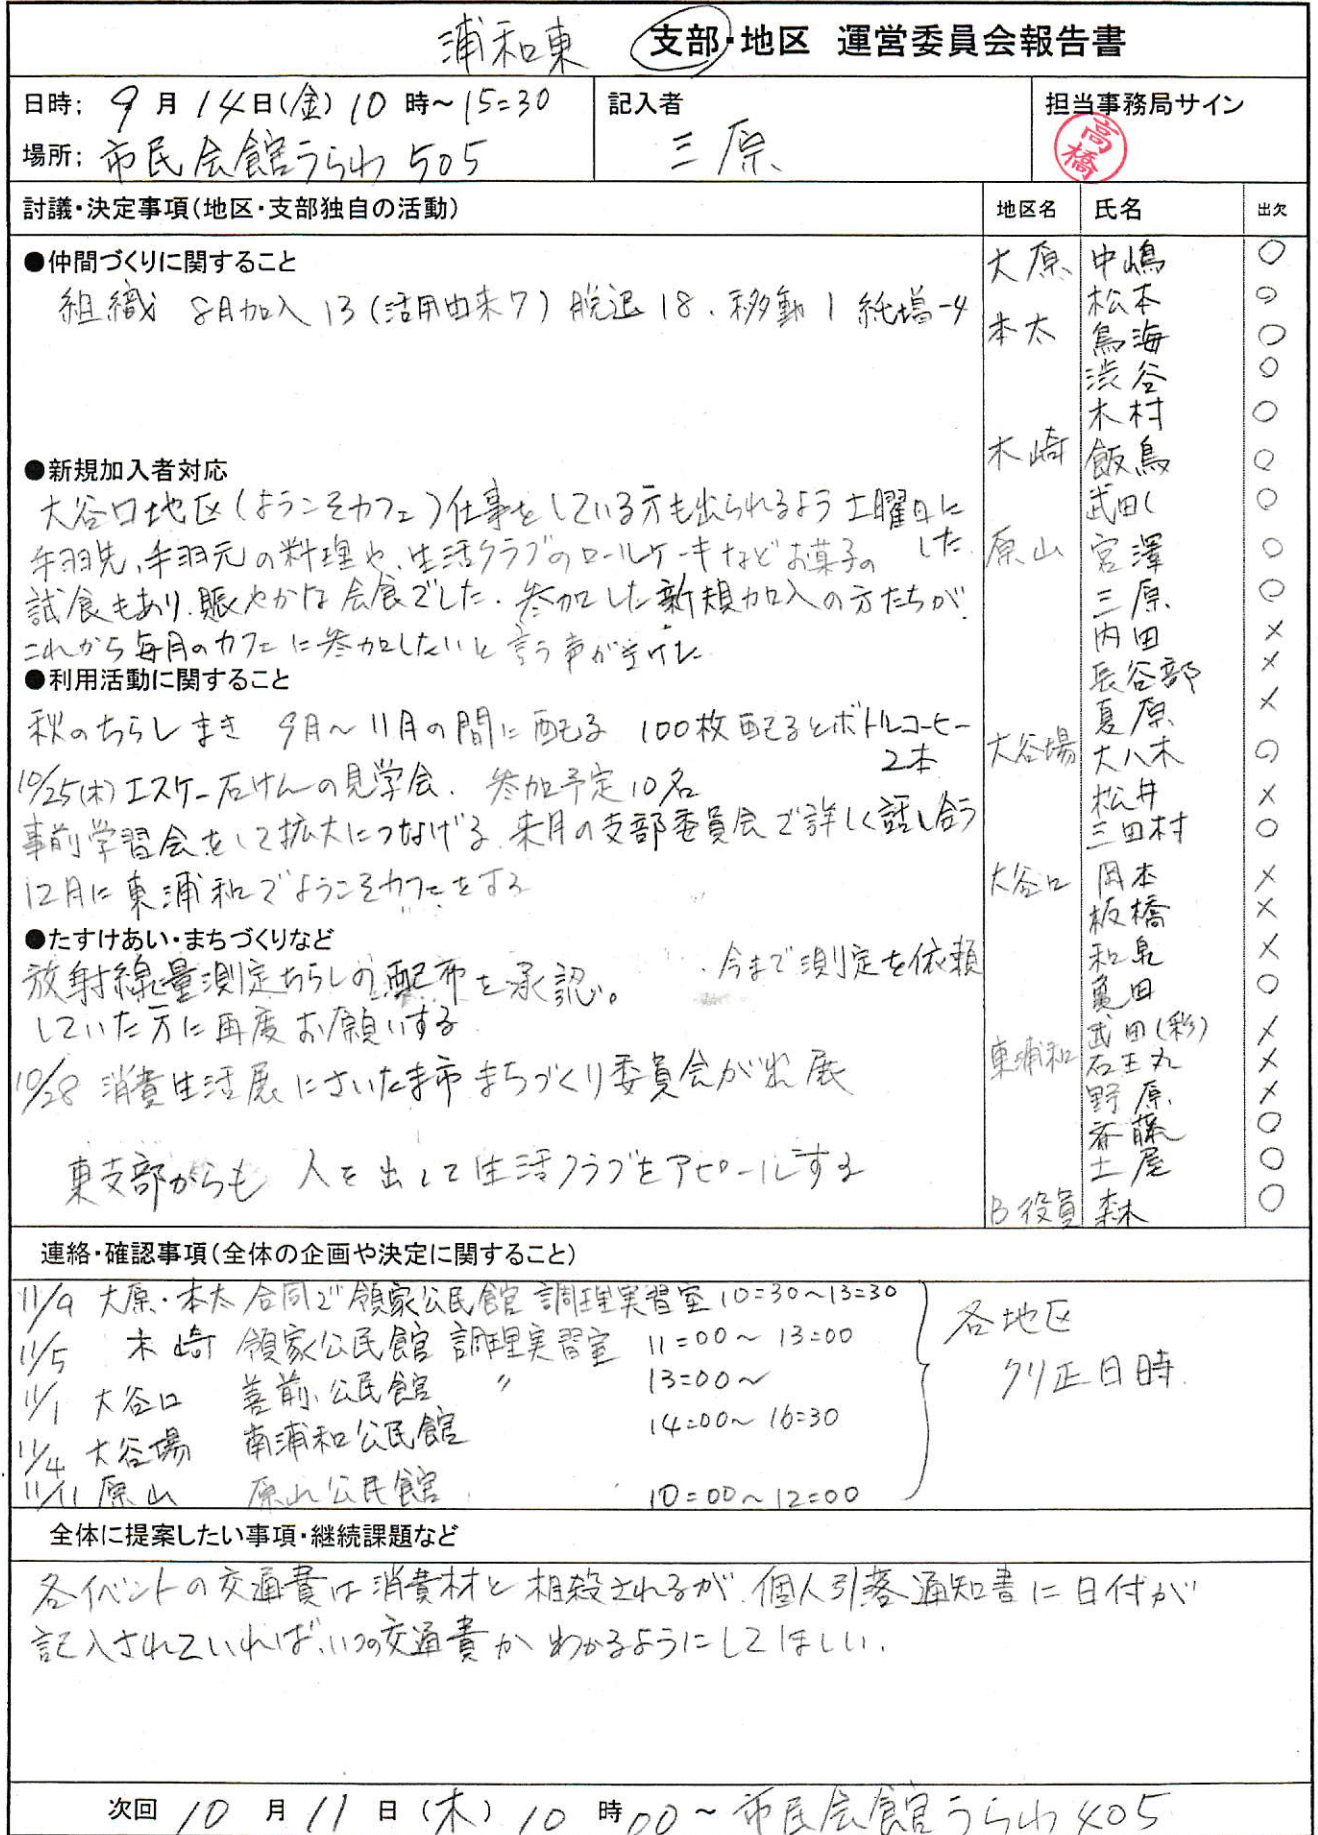 浦和東 支部・地区 運営委員会報告書
日時; 9月14日(金)10時~15:30
場所; 市民会館うらわ 505
記入者
三原
担当事務局サイン
高橋
討議・決定事項(地区・支部独自の活動)
地区名 氏名 出欠
●仲間づくりに関すること
組織 8月加入13(活用由来7)脱退18.移動1 純増-4
●新規加入者対応
大谷口地区(ようこそカフェ)仕事をしている方も出られるよう土曜日に
した.
手羽先、手羽元の料理や、生活クラブのロールケーキなどお菓子の
試食もあり、賑やかな会食でした.参加した新規加入の方たちが
これから毎月のカフェに参加したいと言う声が
●利用活動に関すること
秋のちらしまき 9月~11月の間に配る 100枚配るとボトルコーヒー
2本
10/25(木)エスケー石けんの見学会. 参加予定10名
事前学習会をして拡大につなげる.来月の支部委員会で詳しく話し合う
12月に東浦和でようこそカフェをする
●たすけあい・まちづくりなど
放射線量測定ちらしの配布を承認。 今まで測定を依頼
していた方に再度お願いする
10/28 消費生活展にさいたま市まちづくり委員会が出展
東支部からも 人を出して生活クラブをアピールする
大原 中嶋 ○
松本 ○
本太 鳥海 ○
渋谷 ○
木村 ○
木崎 飯島 ○
武田し ○
原山 宮澤 ○
三原 ○
内田 ×
長谷部 ×
夏原 ×
大谷場 大八木 ○
松井 ×
三田村 ○
大谷口 岡本 ×
板橋 ×
和泉 ×
亀田 ○
武田(彩) ×
東浦和 石王丸 ×
野原 ×
斉藤 ○
土屋 ○
B役員 森 ○
連絡・確認事項(全体の企画や決定に関すること)
11/9 大原・本太 合同で領家公民館 調理実習室 10:30~13:30
11/5 木崎 領家公民館 調理実習室 11:00~13:00
11/1 大谷口 善前公民館 〃 13:00~
11/4 大谷場 南浦和公民館 14:00~16:30
11/11 原山 原山公民館 10:00~12:00
各地区
クリ正日時
全体に提案したい事項・継続課題など
各イベントの交通費は消費材と相殺されるが、個人引落通知書に日付が
記入されていれば、いつの交通費かわかるようにしてほしい.
次回 10月11日(木)10時00~市民会館うらわ405